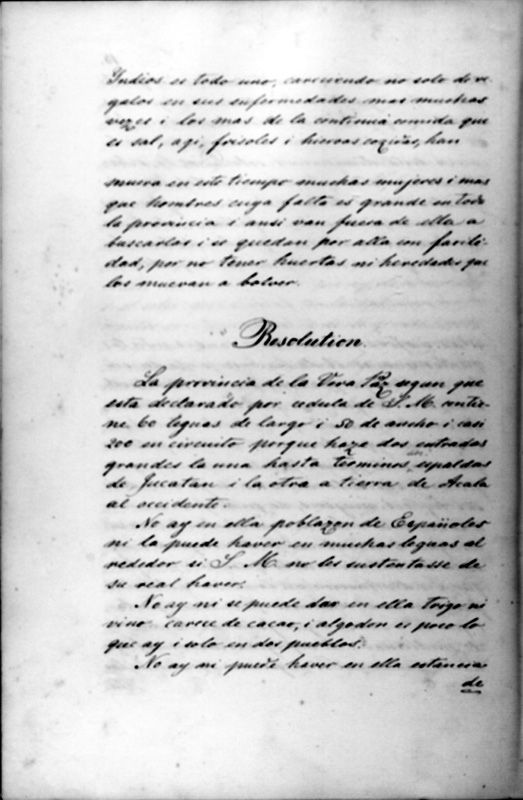 Indios es todo uno, careciendo no solo de re
galos en sus enfermedades mas muchas
vezes i los mas de la continua comida que
es sal, agi, frisoles i hiervas cozidas, han
muerto en este tiempo muchas mujeres i mas
que hombres cuya falta es grande en toda
la provincia i ansi van fuera de ella a
buscarlas i se quedan por alla con facili-
dad, por no tener huertas ni heredades que
los muevan a bolver.
Resolution.
La provincia de la Vera Paz segun que
esta declarado por cedula de S. M. contie-
ne 60 leguas de largo i 50 de ancho i casi
200 en circuito porque haze dos entradas
grandes la una hasta terminos, espaldas
de Jucatan i la otra a tierra de Acala
al occidente.
No ay en ella poblazon de Españoles
ni la puede haver en muchas leguas al
rededor si S. M. no les sustentasse de
su real haver.
No ay ni se puede dar en ella trigo ni
vino carece de cacao, i algodon es poco lo
que ay i solo en dos pueblos.
No ay ni puede haver en ella estancia
de